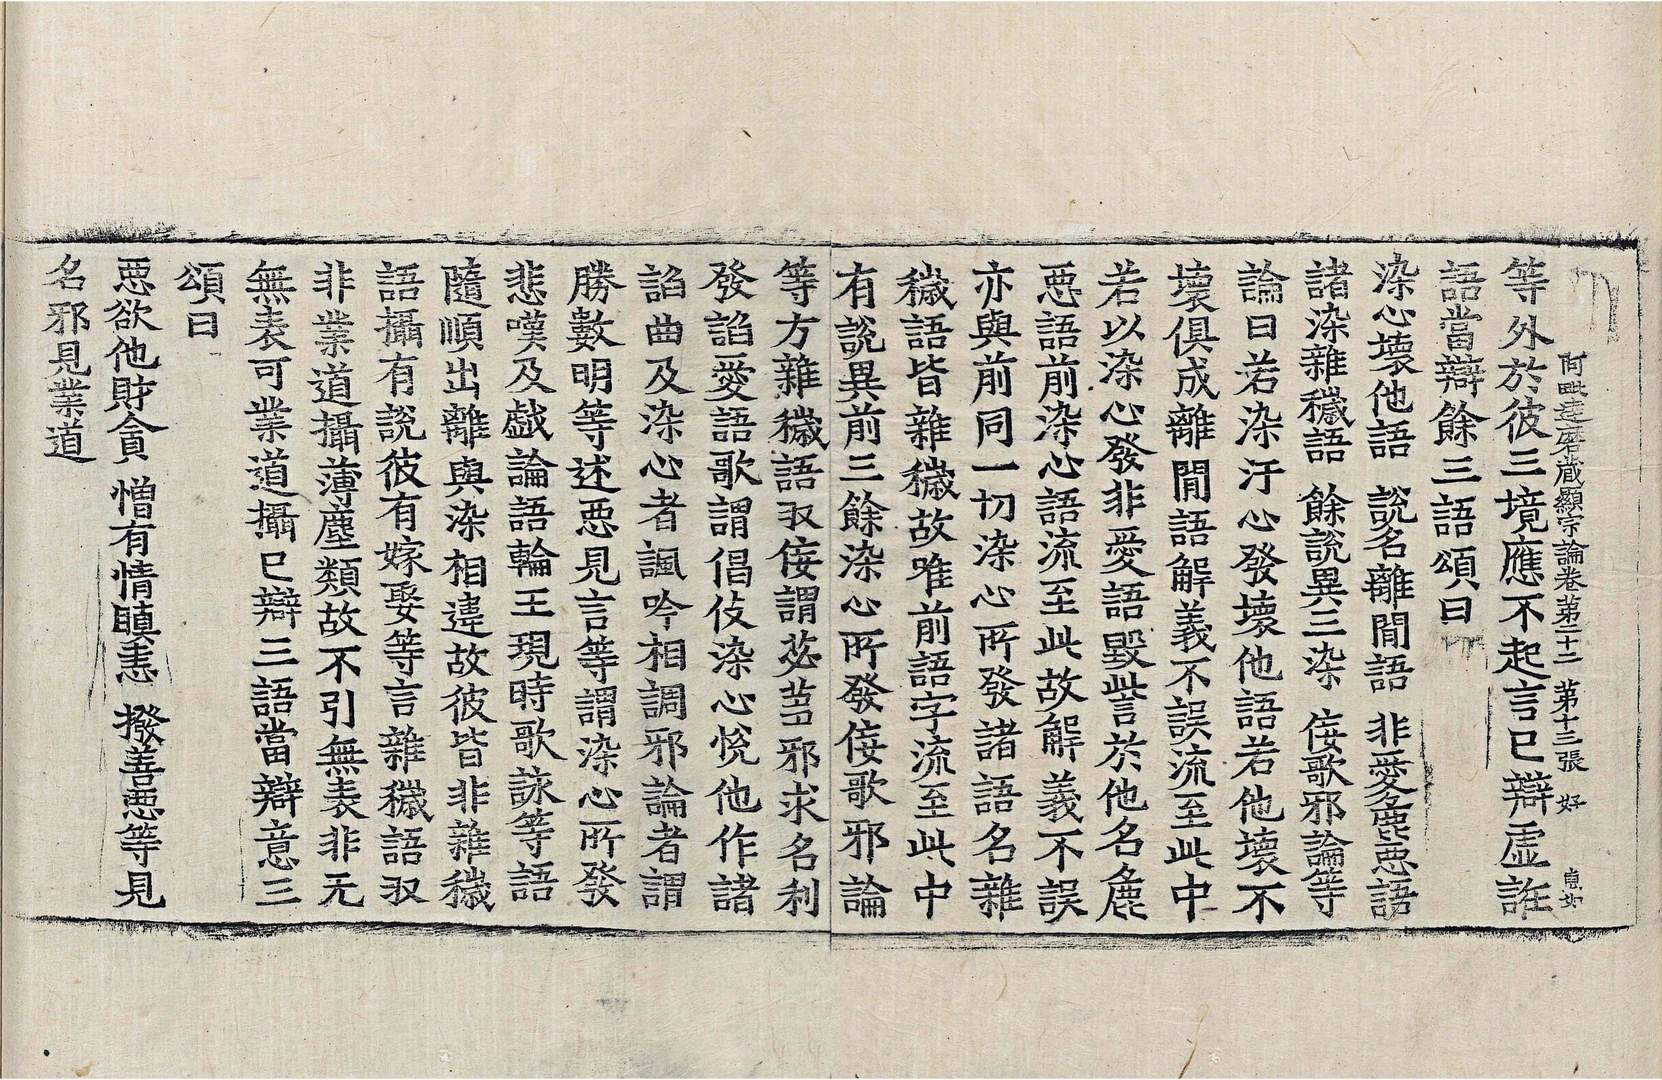 阿毗達磨藏顯宗論卷第二十二 第十三張 好
等外於彼三境應不起言已辯虛誑
語當辯餘三語頌曰
染心壞他語 說名離閒語 非愛麁惡語
諸染雜穢語 餘說異三染 侫歌邪論等
論曰若染汙心發壞他語若他壞不
壞俱成離閒語解義不誤流至此中
若以染心發非愛語毀呰於他名麁
惡語前染心語流至此故解義不誤
亦與前同一切染心所發諸語名雜
穢語皆雜穢故唯前語字流至此中
有說異前三餘染心所發侫歌邪論
等方雜穢語収侫謂苾芻邪求名利
發諂愛語歌謂倡伎染心悅他作諸
諂曲及染心者諷吟相調邪論者謂
勝數明等述惡見言等謂染心所發
悲嘆及戱論語輪王現時歌詠等語
隨順出離與染相違故彼皆非雜穢
語攝有說彼有嫁娶等言雜穢語収
非業道攝薄塵類故不引無表非无
無表可業道攝已辯三語當辯意三
頌曰
惡欲他財貪 憎有情瞋恚 撥善惡等見
名邪見業道